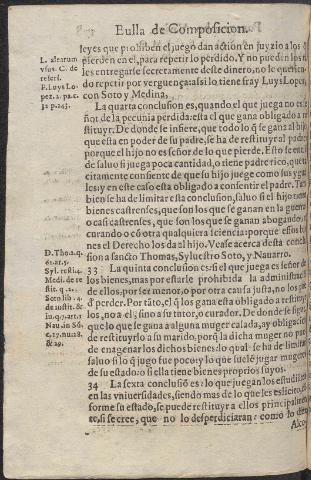 Bulla de Composicion.
leyes que prohiben el juego dan action en juyzio a los q̃
pierden en el, para repetir lo perdido. Y no pueden los
les entregarse secretamente deste dinero, no le querien-
do repetir por verguença: assi lo tiene fray Luys Lopez,
con Soto y Medina.
La quarta conclusion es, quando el que juega no es se
ñor de la pecunia perdida: esta el que gana obligado a re
stituyr. De donde se infiere, que todo lo q̃ se gana al hijo
que esta en poder de su padre, se ha de restituyr al padre
porque el hijo no es señor de lo que pierde. Esto se entiẽ
de saluo si juega poca cantidad, o tiene padre rico, que ta
citamente consiente de que su hijo juegue como sus ygua
les: y en este caso esta obligado a consentir el padre. Tam
bien se ha de limitar esta conclusion, saluo si el hijo tiene
bienes castrenses, que son los que se ganan en la guerra
o casi castrenses, que son los que se ganan abogando,
curando o cõ otra qualquiera sciencia: porque estos bie
nes el Derecho los da al hijo. Vease acerca desta conclu
sion a sancto Thomas, Syluestro Soto, y Nauarro.
33 La quinta conclusion es: si el que juega es señor de
los bienes, mas por estarle prohibida la administraciõ
de ellos, por ser menor, o por otra causa justa, no los pue
d̃ perder. Por tãto, el q̃ los gana esta obligado a restituyr
los, no a el, sino a su tutor, o curador. De donde se sigue
que lo que se gana a alguna muger casada, ay obligaciõ
de restituyrlo a su marido, porq̃ la dicha muger no puede
de enagenar los dichos bienes: lo qual se ha de limitar
saluo si lo q̃ jugo fue poco: y lo que suelẽ jugar mugeres
de su estado: o si ella tiene bienes proprios suyos.
34 La sexta conclusiõ es: lo que juegan los estudiãtes
en las vniuersidades, siendo mas de lo que les es licito, cõ
forme su estado, se puede restituyr a ellos principalmen
te, si se cree, que no lo desperdiciaran: como lo dize
Alco-
L. alearum
vsus. C. de
relesi.
F. Luys Lo-
pez. 2. pa. c.
31 p. 243.
D. Tho. 2. q.
62. ar. 5.
Syl. resti. 4.
Medi. de re
stit. q. 22.
Soto lib. 4.
de iustit. &
iu. q. 7. ar. 1
Nau. in Sũ.
c. 17. nu. 18.
& 29.